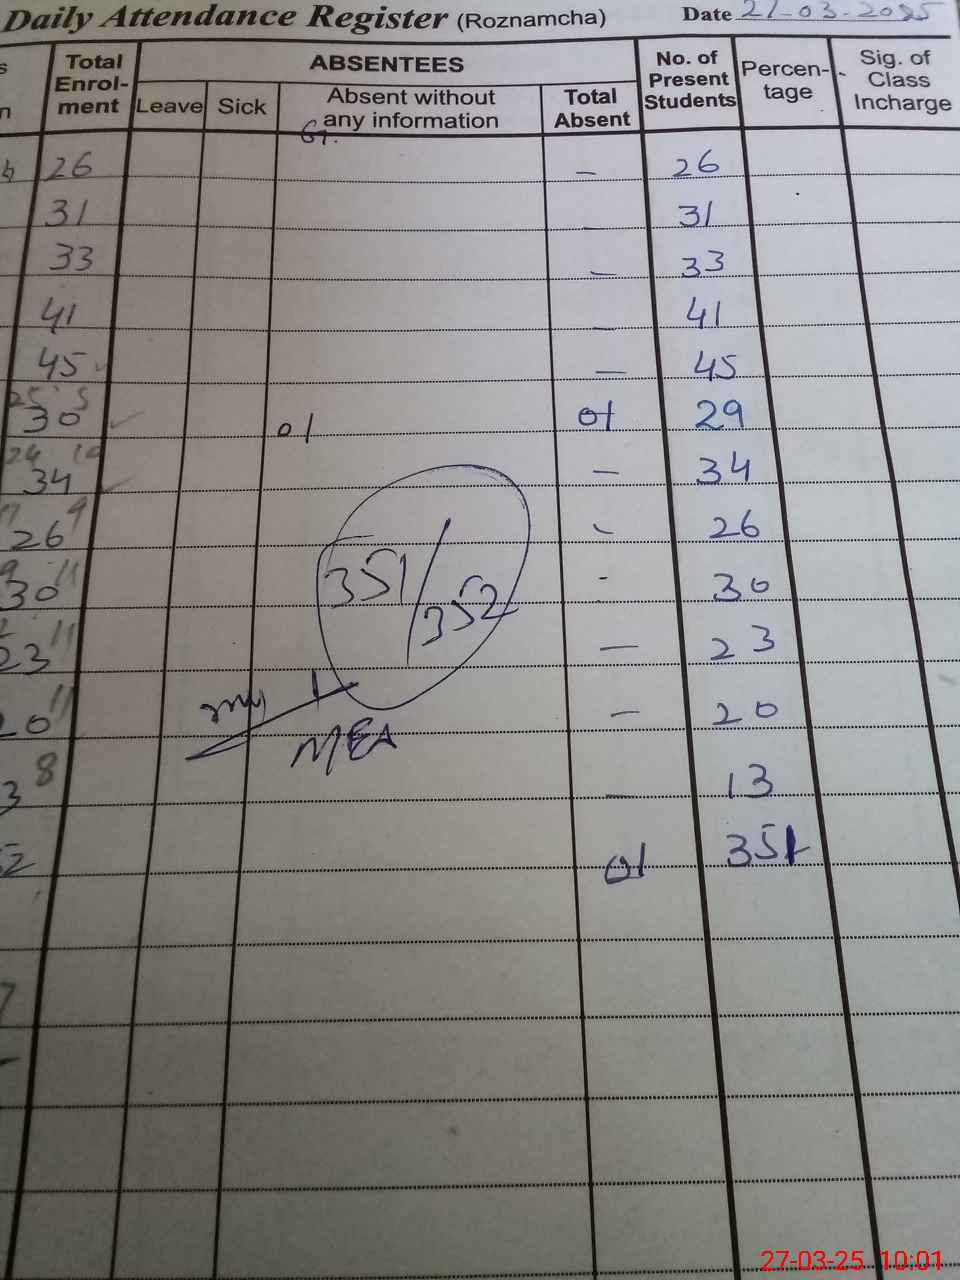 Daily Attendance Register (Roznamcha) Date 27-03-2025
Total Enrol-ment ABSENTEES No. of Present Students Percen-tage Sig. of Class Incharge
Leave Sick Absent without any information Total Absent
26 — 26
31 — 31
33 — 33
41 — 41
45 — 45
25 5
30 01 01 29
24 10
34 — 34
9
26 - 26
9 11
30 - 30
11
23 — 23
11
20 — 20
8
3 — 13
52 01 351
351/352
MEA
7
27-03-25 10:01